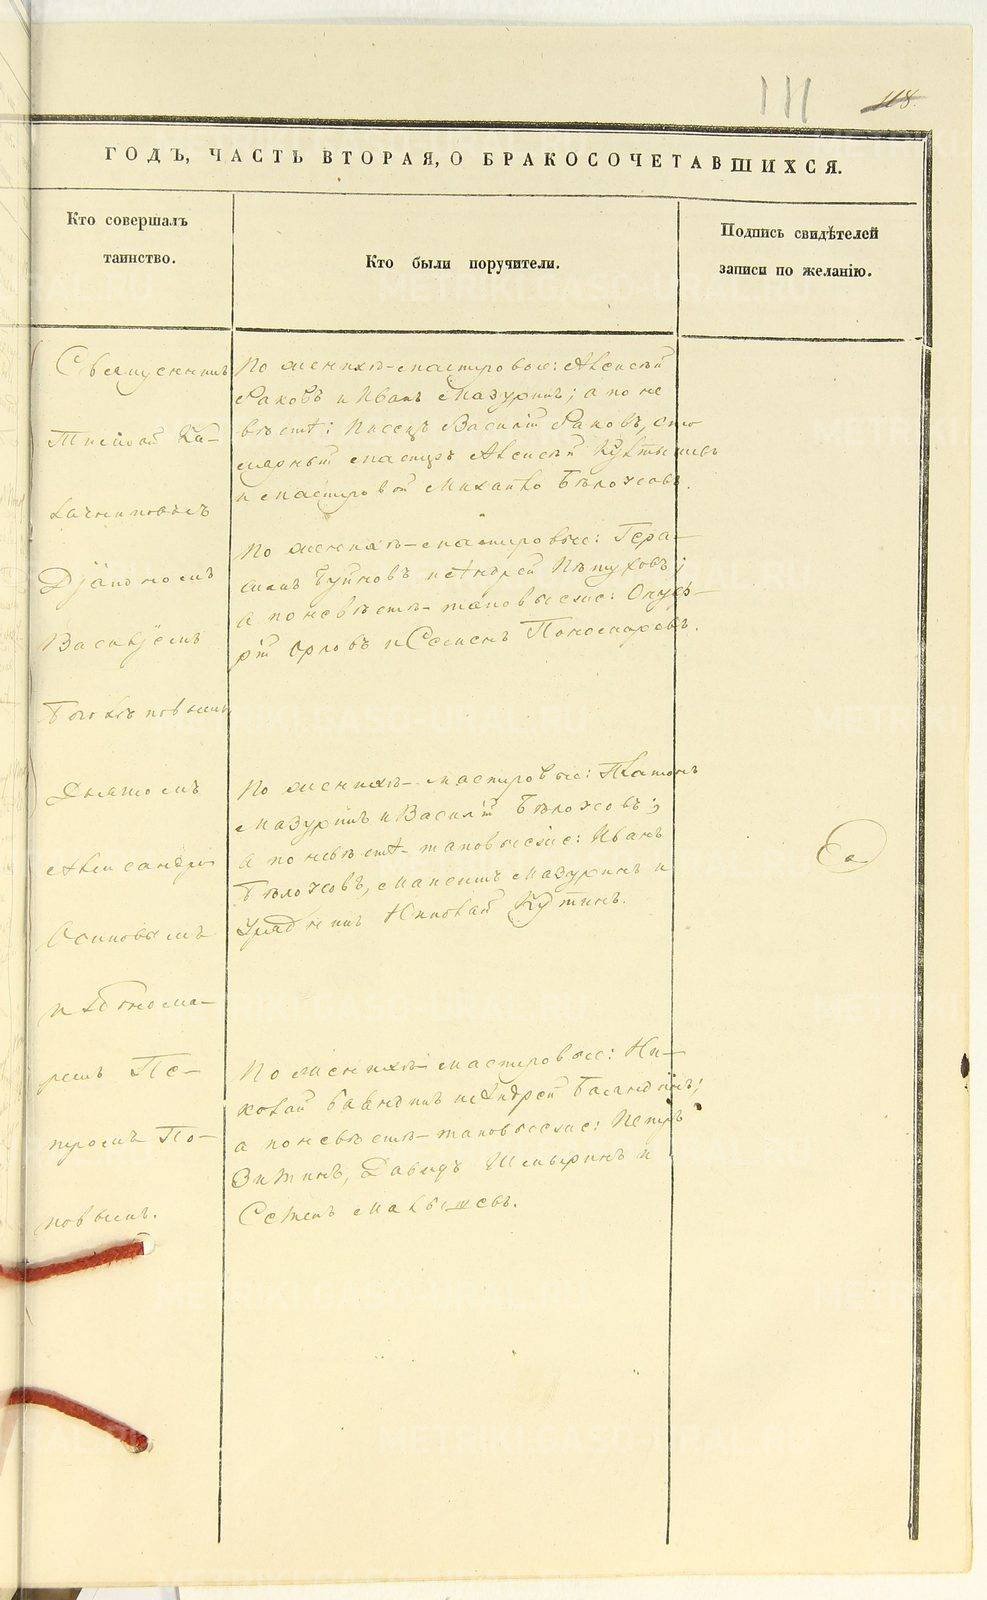 111
118.
ГОДЪ, ЧАСТЬ ВТОРАЯ, О БРАКОСОЧЕТАВШИХСЯ.
Кто совершалъ
таинство.
Кто были поручители.
Подпись свидѣтелей
записи по желанію.
Священникъ
Ка-
Дїакономъ
Василїемъ
Дьячкомъ
Александромъ
Осиповымъ
и Понома-
ремъ Пе-
тромъ По-
повымъ.
По женихѣ-мастеровые: Алексѣй
Раковъ и Иванъ Мазуринъ; а по не
вѣстѣ: Писецъ Василій Раковъ, сто
лярный мастеръ Алексѣй
и мастеровой Михайло Бѣлоусовъ.
По женихѣ-мастеровые: Гера-
симъ и Андрей Пѣтуховъ;
а по невѣстѣ-таковыеже: Онуф-
рій Орловъ и Семенъ Пономаровъ.
По женихѣ-мастеровые: Платонъ
Мазуринъ и Василій Бѣлоусовъ;
а по невѣстѣ-таковыеже: Иванъ
Бѣлоусовъ, Максимъ Мазуринъ и
Урядникъ Николай
По женихѣ-мастеровые: Ни-
колай и Андрей
а по невѣстѣ-таковыеже: Петръ
Давидъ и
Семенъ Малышевъ.
METRIKI.GASO-URAL.RU